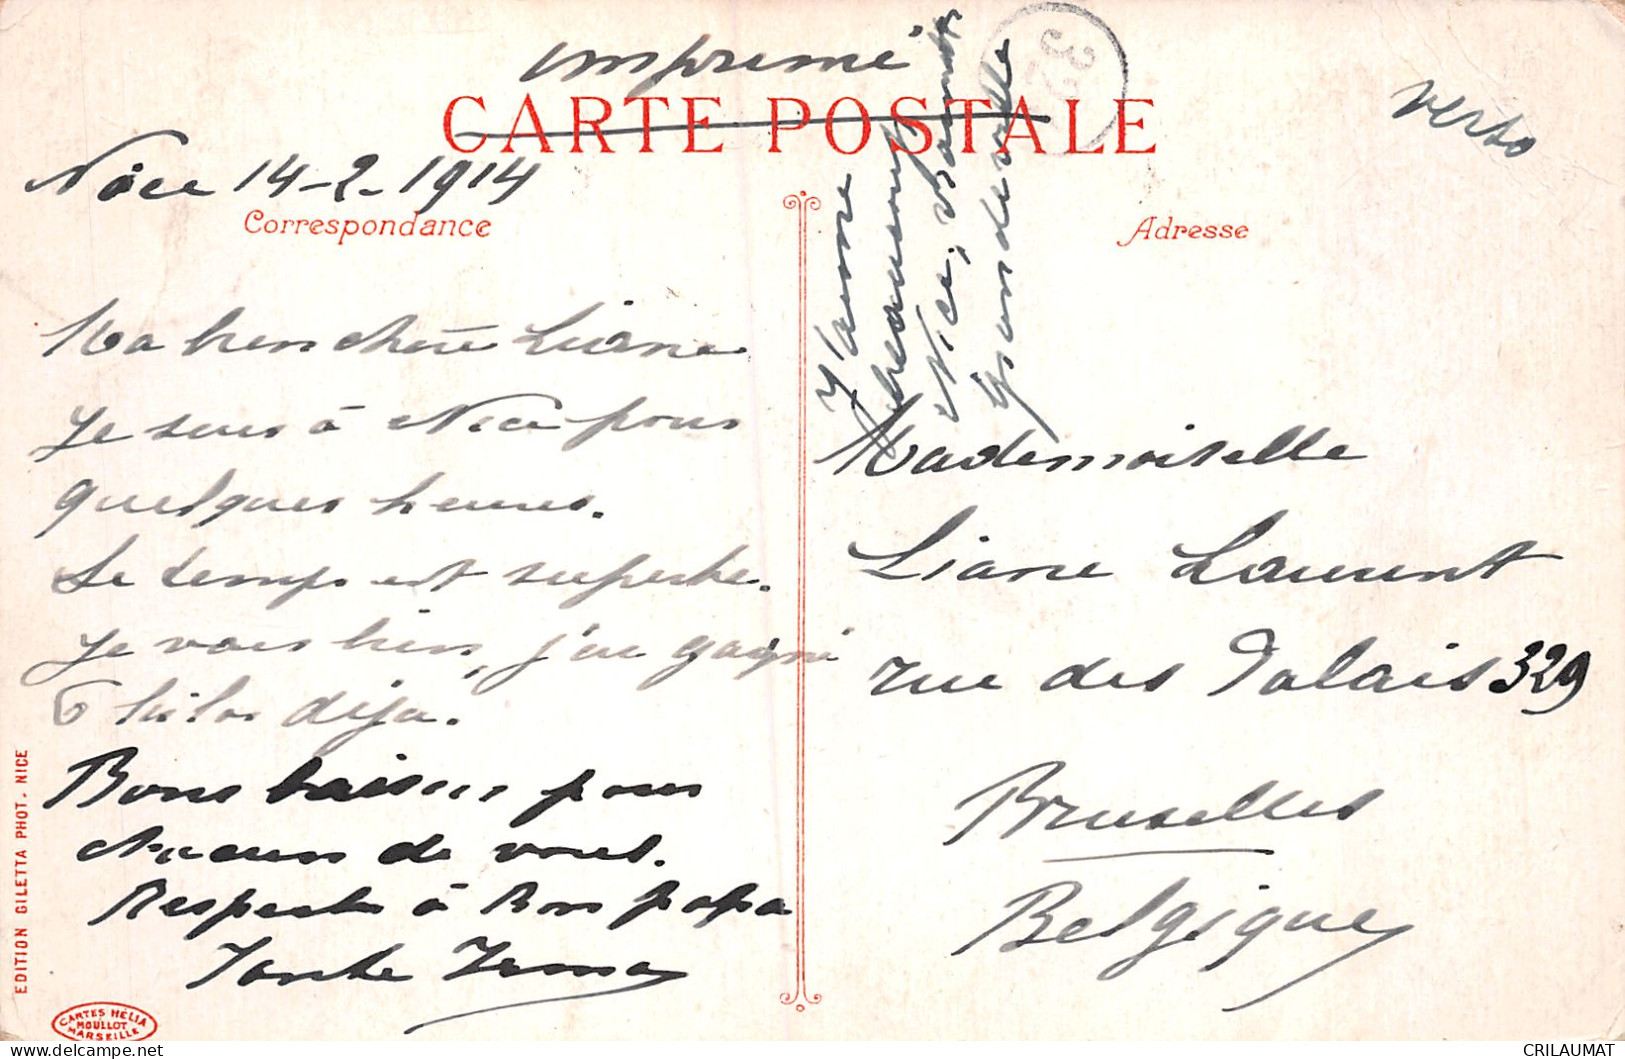 imprimé
CARTE POSTALE
verso
Nice 14-2-1914
Correspondance
Adresse
Ma bien chère Liane
Je suis à Nice pour
quelques heures.
Le temps est superbe.
Je vais bien, j'ai gagné
6 kilos déja.
Bons baisers pour
chacun de vous.
Respects à Bon papa
Tante Irma
J'aime
beaucoup
Nice,
grande ville
Mademoiselle
Liane Laurent
rue des Palais 329
Bruxelles
Belgique
EDITION GILETTA PHOT. NICE
CARTES HÉLIA
MOULLOT
MARSEILLE
CRILAUMAT